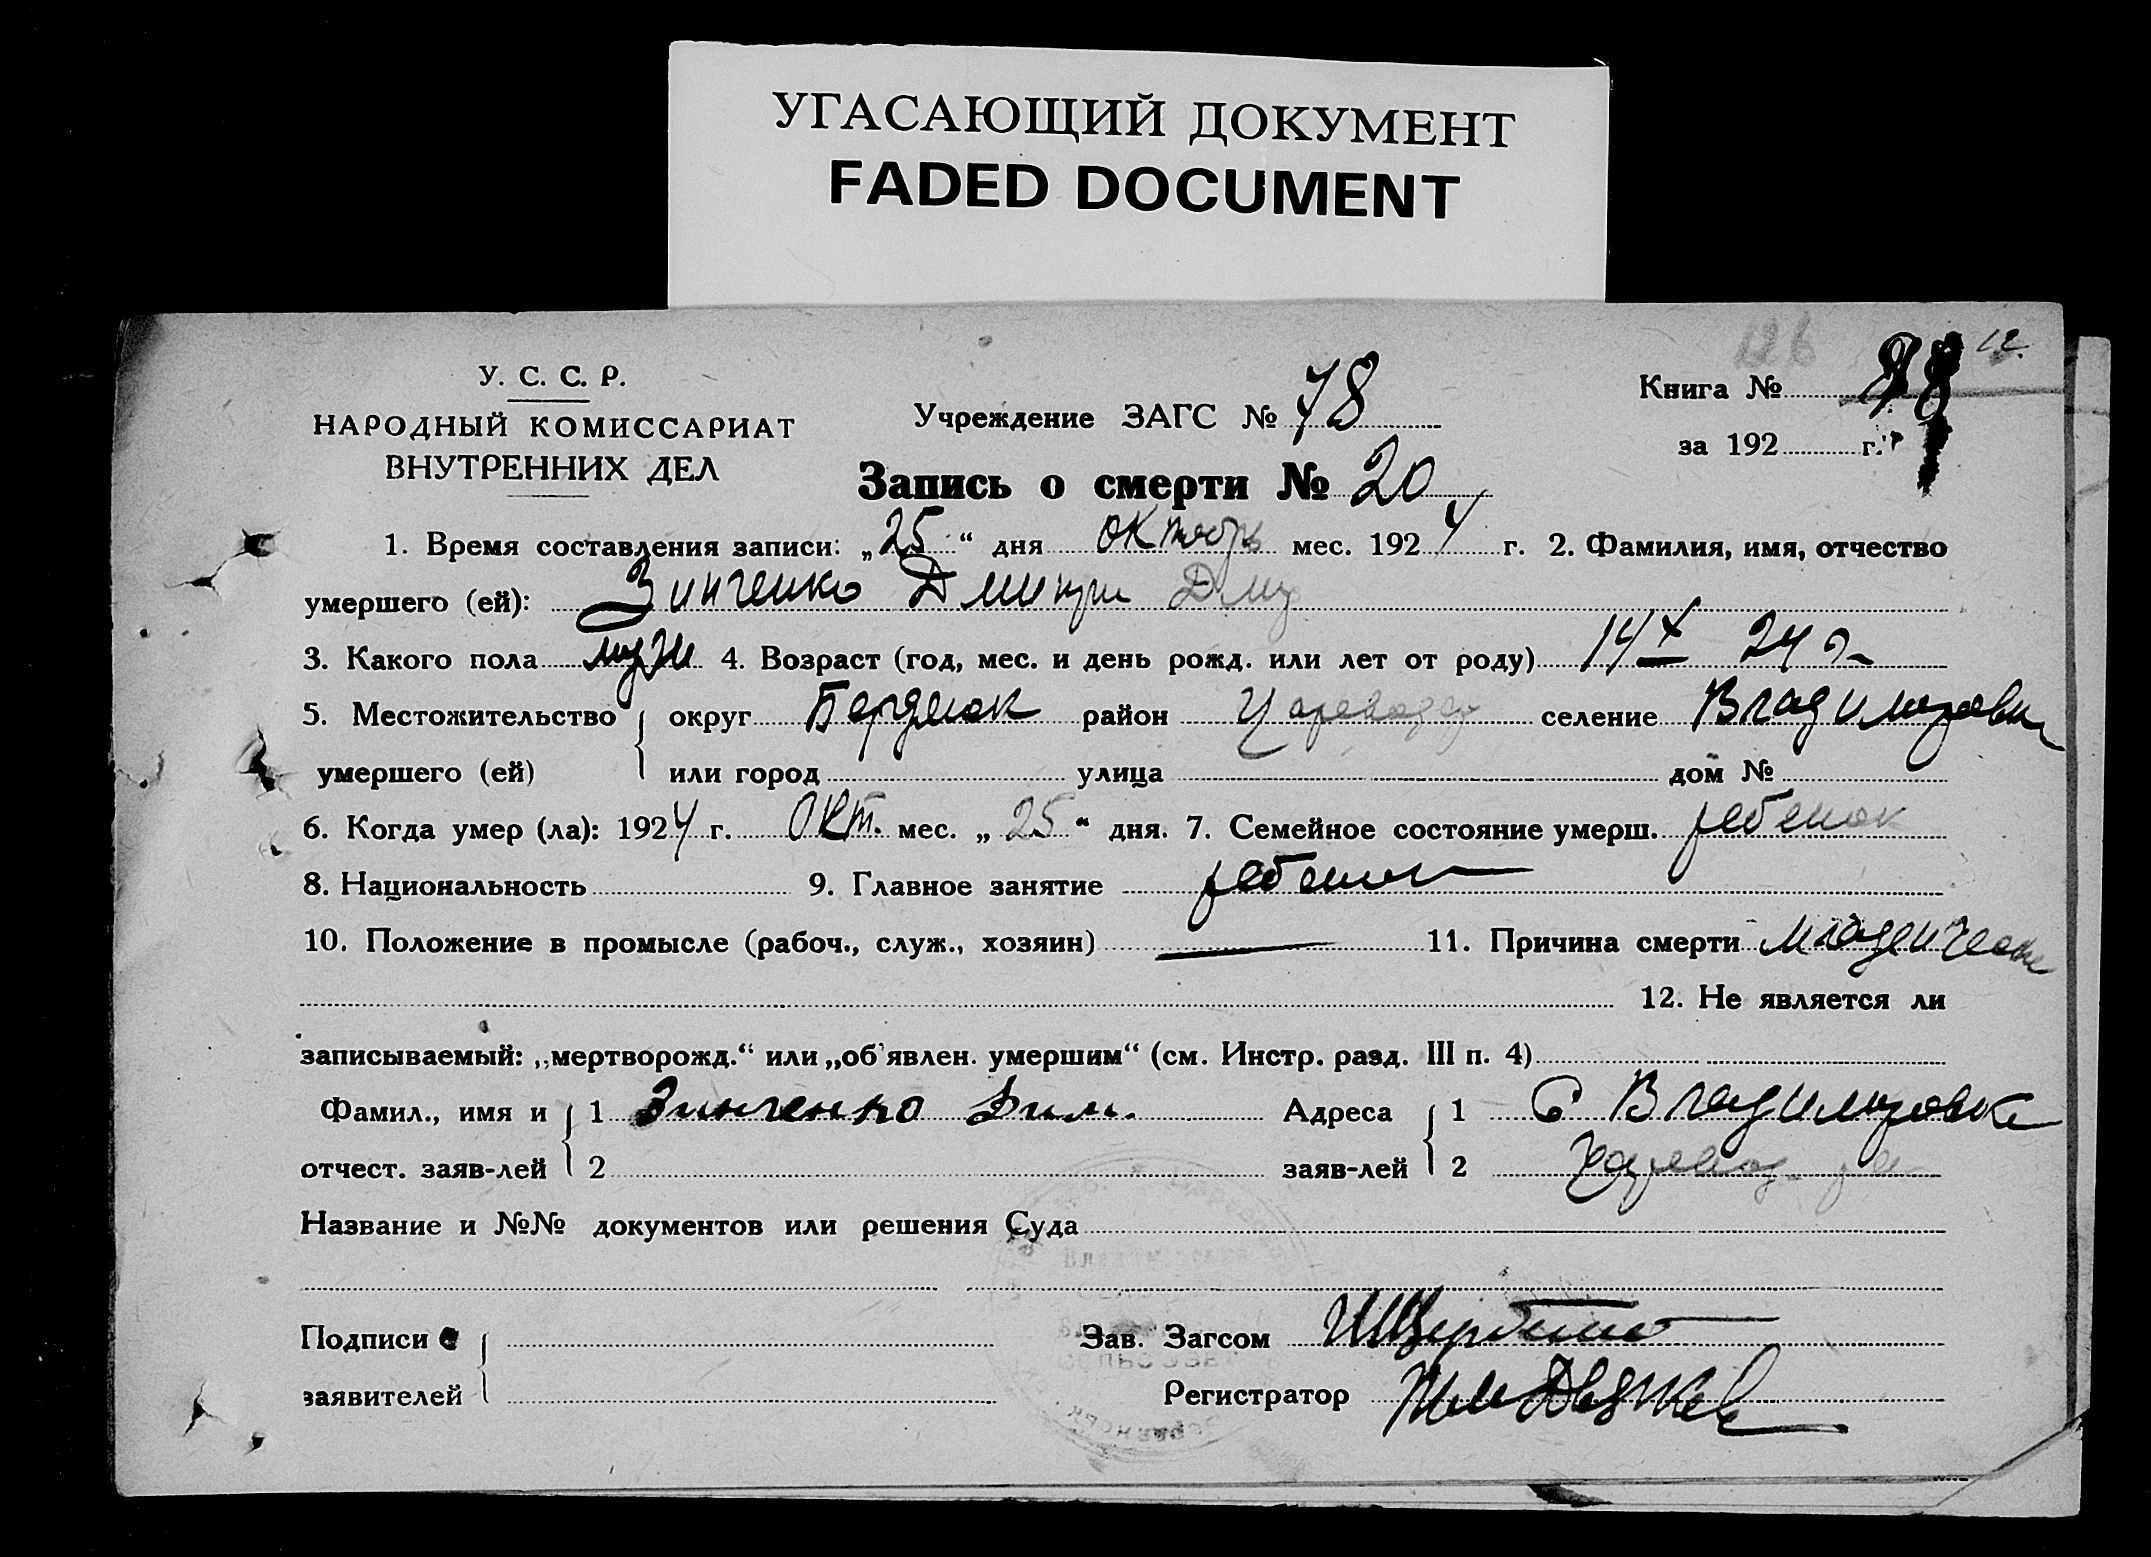 УГАСАЮЩИЙ ДОКУМЕНТ
FADED DOCUMENT
126 12.
У. С. С. Р.
НАРОДНЫЙ КОМИССАРИАТ
ВНУТРЕННИХ ДЕЛ
Учреждение ЗАГС № 78
Книга №
за 192 г.
Запись о смерти № 20
1. Время составления записи: „25“ дня октобр мес. 1924 г. 2. Фамилия, имя, отчество
умершего (ей): Зинченко Дмитри Дму
3. Какого пола муж 4. Возраст (год, мес. и день рожд. или лет от роду) 14 X 24 г.
5. Местожительство округ Бердянск район селение Владимировка
умершего (ей) или город улица дом №
6. Когда умер (ла): 1924 г. Окт. мес. „25“ дня. 7. Семейное состояние умерш. ребенок
8. Национальность 9. Главное занятие ребенок
10. Положение в промысле (рабоч., служ., хозяин) — 11. Причина смерти младенческ
12. Не является ли
записываемый: „мертворожд.“ или „об'явлен. умершим“ (см. Инстр. разд. III п. 4)
Фамил., имя и 1 Зинченко Дим. Адреса 1 С Владимировка
отчест. заяв-лей 2 заяв-лей 2
Название и №№ документов или решения Суда
Подписи Зав. Загсом
заявителей Регистратор